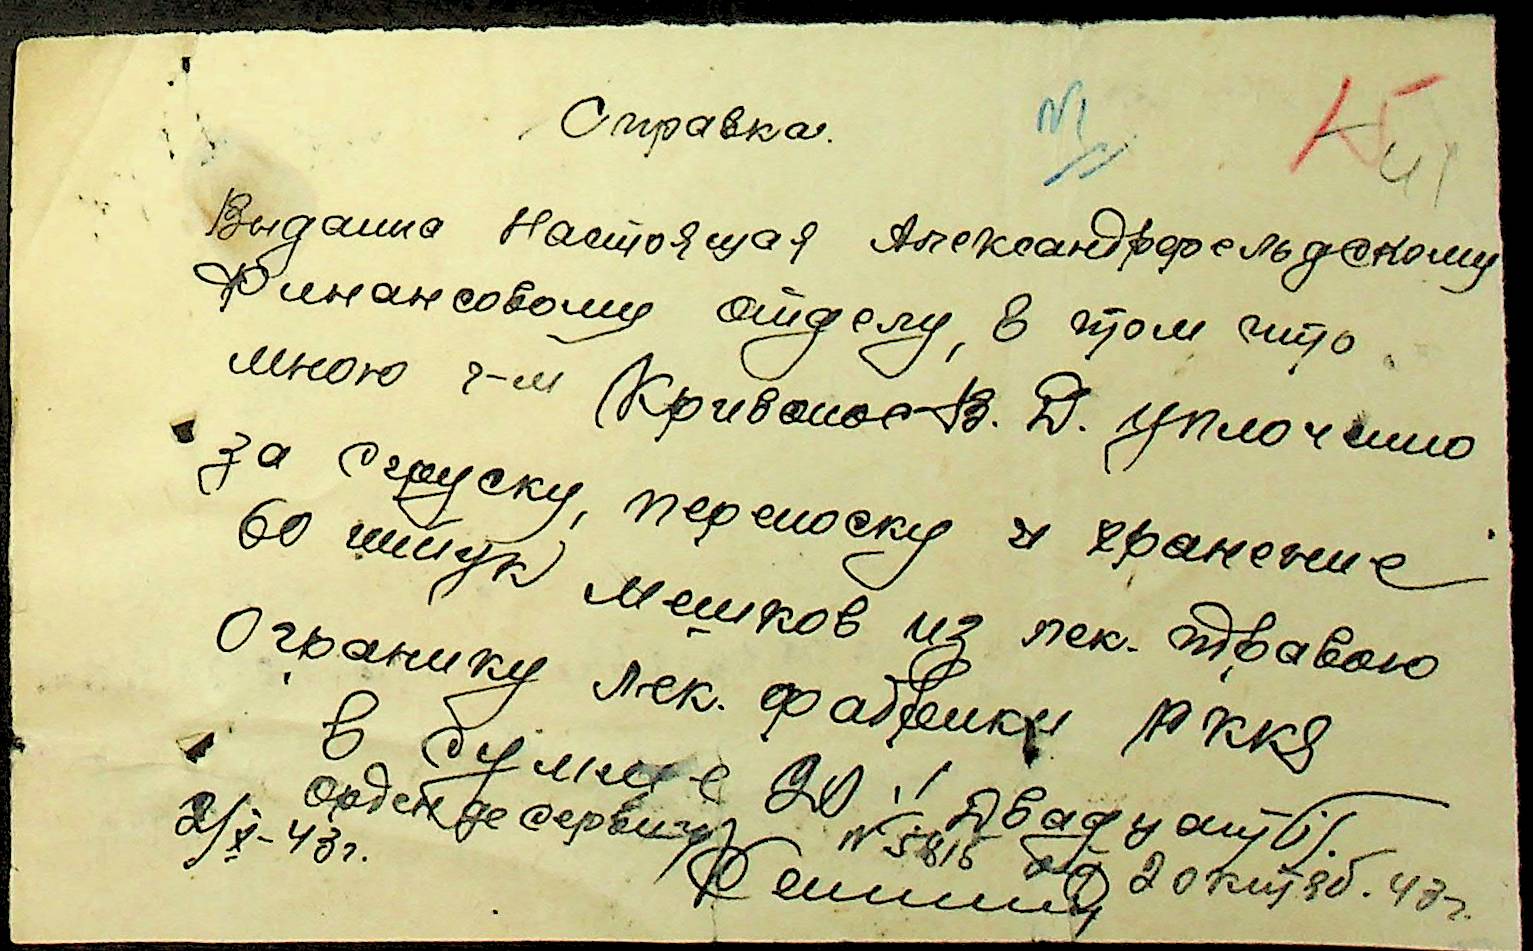 Справка.
Выданна Настоящая Александрфельдскому
Финансовому отделу, в том что
мною г-м Кривонос В. Д. уплочинно
за згруску, переноску и хранение
60 штук мешков из лек. травою
Огранику лек. фабрики РККА
в сумме 20 / Двадцать /.
Орденде сервичу N 5816 от 20 октяб. 43 г.
2/X-43 г.
41